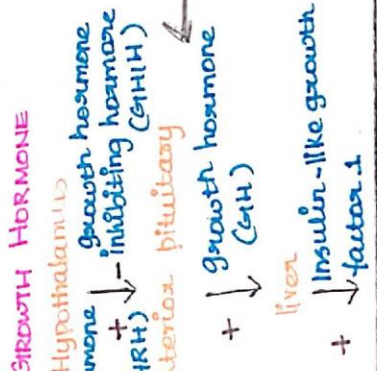 GROWTH HORMONE
Hypothalamus
mone growth hormone
+ - inhibiting hormone
HRH) (GHIH)
terior pituitary
+ growth hormone
(GH)
liver
+ Insulin-like growth
factor 1